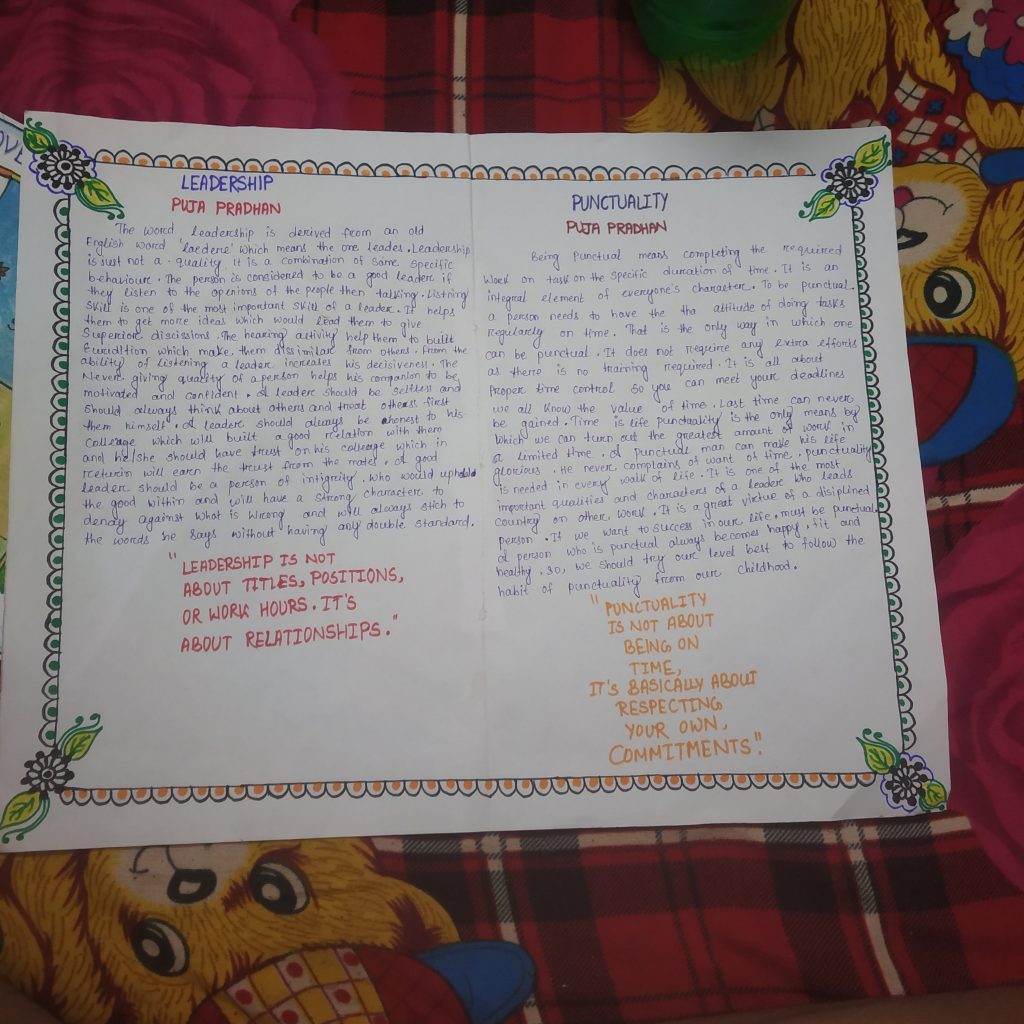 OVE
LEADERSHIP
PUJA PRADHAN
The word leadership is derived from an old
English word 'laedere' which means the one leades. Leadership
is just not a quality it is a combination of same specific
behaviour. The person is considered to be a good leader if
they listen to the openions of the people then talking. Listning
skill is one of the most important skill of a leader. It helps
them to get more ideas which would lead them to give
Superior discissions. The hearing activiy help them to built
which make them dissimilar from others. From the
ability of listening a leader increates his decisiveness. The
Never giving quality of a person helps his companion to be
motivated and confident. A leader should be selfless and
should always think about others and treat others first
them himself. A leader should always be honest to his
Colleage which will built a good relation with them
and he/she should have trust on his colleage which in
return will earn the trust from the mates. A good
leader should be a person of intigrity. Who would uphold
the good within and will have a strong character to
denay against what is wrong and will always stich to
the words he says without having any double standard.
"LEADERSHIP IS NOT
ABOUT TITLES, POSITIONS,
OR WORK HOURS. IT'S
ABOUT RELATIONSHIPS."
PUNCTUALITY
PUJA PRADHAN
Being Punctual means completing the required
work on task on the specific duration of time. It is an
integral element of everyone's character. To be punctual.
a person needs to have the tha attitude of doing tasks
regularly on time. That is the only way in which one
can be punctual. It does not require any extra efforts
as there is no training required. It is all about
Proper time control so you can meet your deadlines
we all know the value of time. Last time can never
be gained. Time is life punctuality is the only means by
which we can turn out the greatest amount of work in
a limited time. A punctual man can make his life
glorious. He never complains of want of time. punctuality
is needed in every walk of life. It is one of the most
important qualities and characters of a leader who leads
country on other work. It is a great virtue of a disiplined
person. If we want to success in our life, must be punctual.
A person who is punctual always becomes happy, fit and
healthy. so, we should try our level best to follow the
habit of punctuality from our childhood.
"PUNCTUALITY
IS NOT ABOUT
BEING ON
TIME,
IT'S BASICALLY ABOUT
RESPECTING
YOUR OWN,
COMMITMENTS."